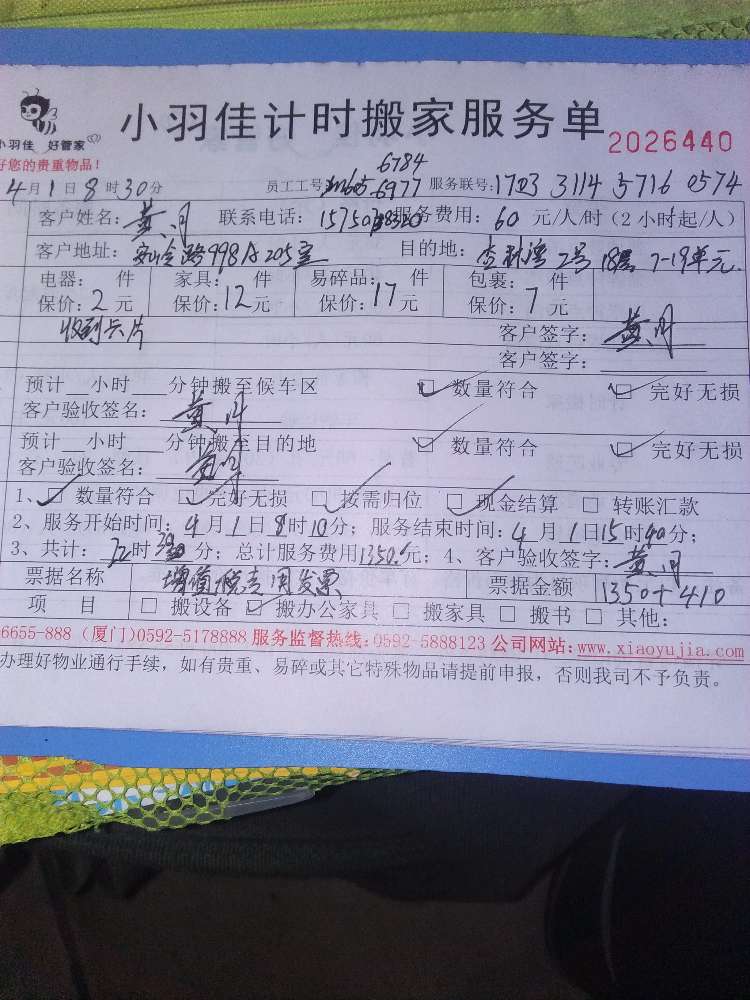 小羽佳计时搬家服务单 2026440
小羽佳 好管家
好您的贵重物品！
4月1日8时30分 员工工号: 6784 6977 服务联号:1703 3114 5716 0574
客户姓名：黄月 联系电话：服务费用：60 元/人/时（2小时起/人）
客户地址：安岭路998A205室 目的地：杏林湾2号18层7-19单元
电器： 件 家具： 件 易碎品： 件 包裹： 件
保价：2元 保价：12元 保价：17元 保价：7元
收到卡片 客户签字：黄月
客户签字：
预计__小时___分钟搬至候车区 ☑ 数量符合 ☑ 完好无损
客户验收签名：黄月
预计__小时___分钟搬至目的地 ☑ 数量符合 ☑ 完好无损
客户验收签名：黄月
1、☑ 数量符合 ☑ 完好无损 ☑ 按需归位 ☑ 现金结算 □ 转账汇款
2、服务开始时间：4月1日8时10分；服务结束时间：4月1日15时40分；
3、共计：时分；总计服务费用1350元；4、客户验收签字：黄月
票据名称 增值税专用发票 票据金额 1350+410
项 目 □ 搬设备 ☑ 搬办公家具 □ 搬家具 □ 搬书 □ 其他：
6655-888（厦门）0592-5178888 服务监督热线：0592-5888123 公司网站：www.xiaoyujia.com
办理好物业通行手续，如有贵重、易碎或其它特殊物品请提前申报，否则我司不予负责。